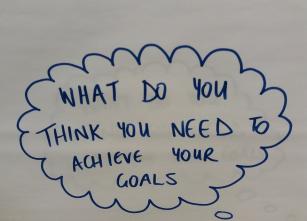 WHAT DO YOU
THINK YOU NEED TO
ACHIEVE YOUR
GOALS